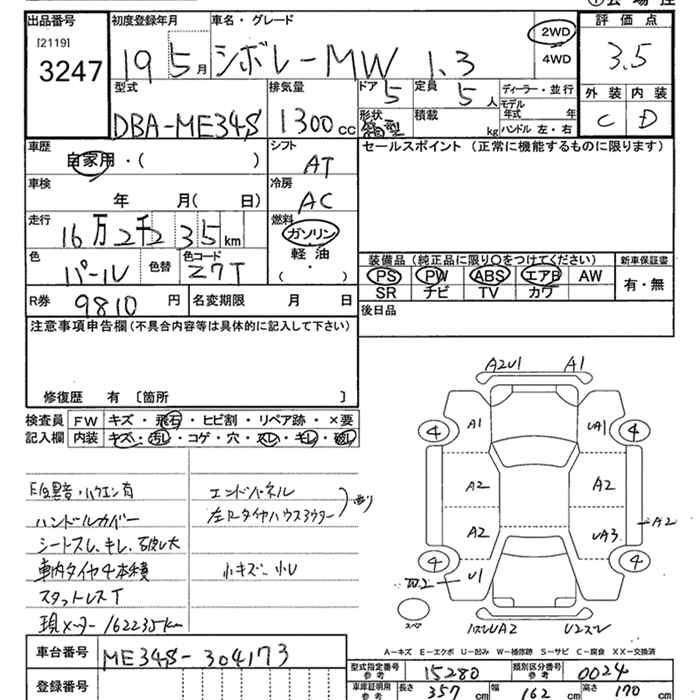 出品番号 初度登録年月 車名・グレード 評価点
[2119]
3247
19 5月 シボレーMW 1.3 2WD 4WD 3.5
型式 排気量 ドア 定員 ディーラー・並行 外装 内装
DBA-ME34S 1300cc 5 5人 モデル年式 年 C D
形状 箱型 積載 kg ハンドル 左・右
車歴 シフト セールスポイント (正常に機能するものに限ります)
自家用・( ) AT
車検 冷房
年 月( 日) AC
走行 燃料
16万2千235km ガソリン
軽油
( )
色 色替 色コード 装備品 (純正品に限り○をつけてください) 新車保証書
パール Z7T PS PW ABS エアB AW 有・無
SR ナビ TV カワ
R券 9810円 名変期限 月 日 後日品
注意事項申告欄(不具合内容等は具体的に記入して下さい)
修復歴 有 [箇所 ]
検査員 FW キズ・飛石・ヒビ割・リペア跡・×要
記入欄 内装 キズ・汚し・コゲ・穴・スレ・キレ・破レ
エンドパネル
ハンドルカバー
シートスレ、キレ、破レ大
小キズ、小レ
車内タイヤ4本積
スタットレスT
現メーター162235km
A2U1 A1
A1 UA1
4 4
A2 A2
A2 UA3 A2
4 4
U1
スペア
A-キズ E-エクボ U-凹み W-補修跡 S-サビ C-腐食 XX-交換済
車台番号 ME34S-304173
登録番号
型式指定番号 参考 15280 類別区分番号 参考 0024
車庫証明用 参考 長さ 357cm 幅 162cm 高さ 170cm